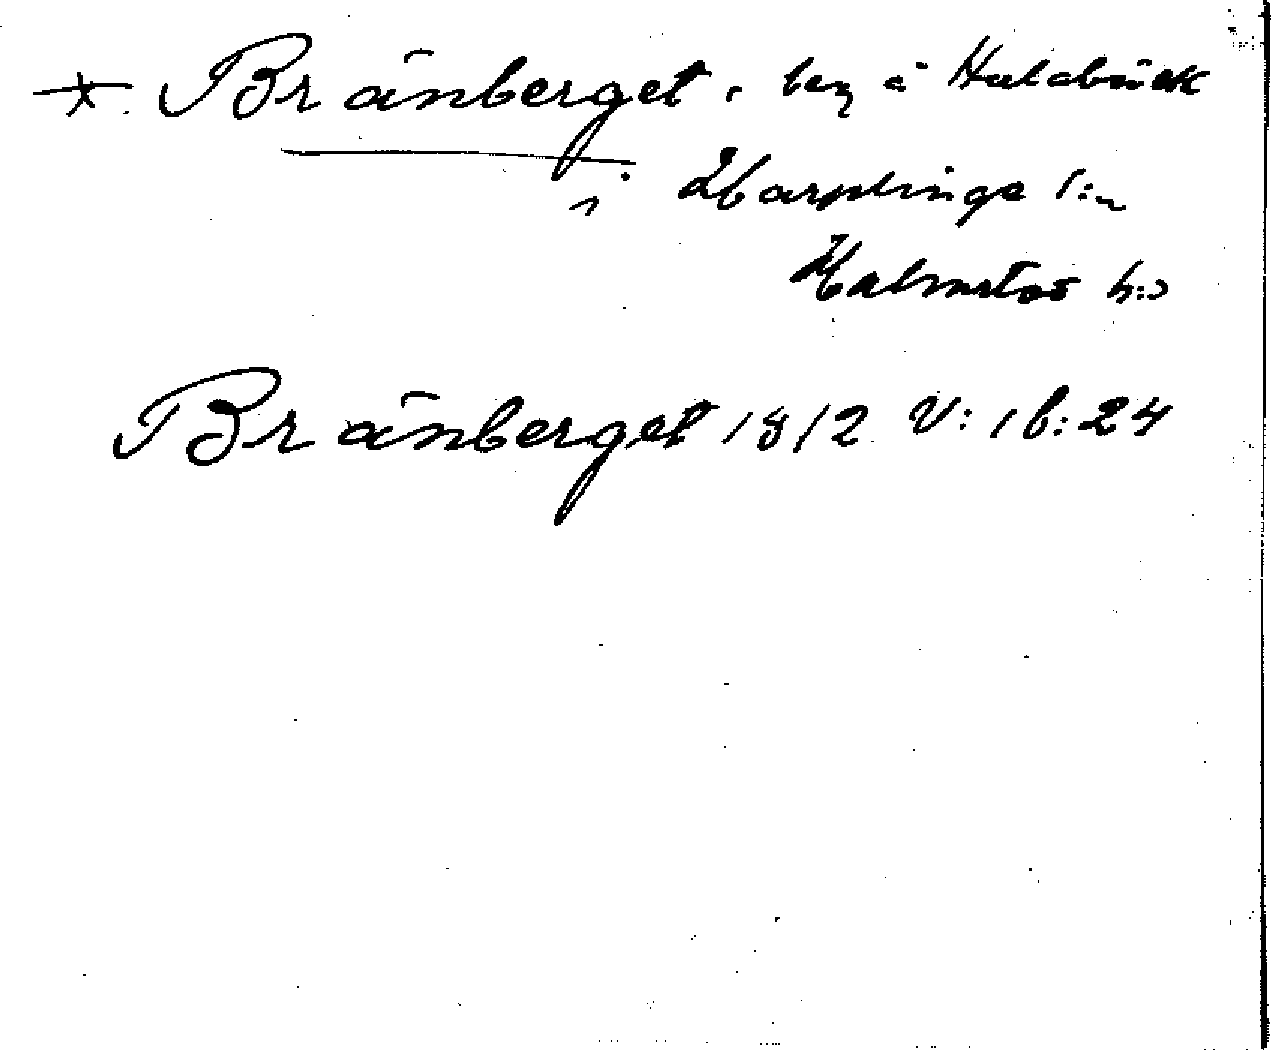 * Bränberget, beg å Haldbäck
i Harplinge s:n
Halmstad h:d
Bränberget 1812 V: 16: 24